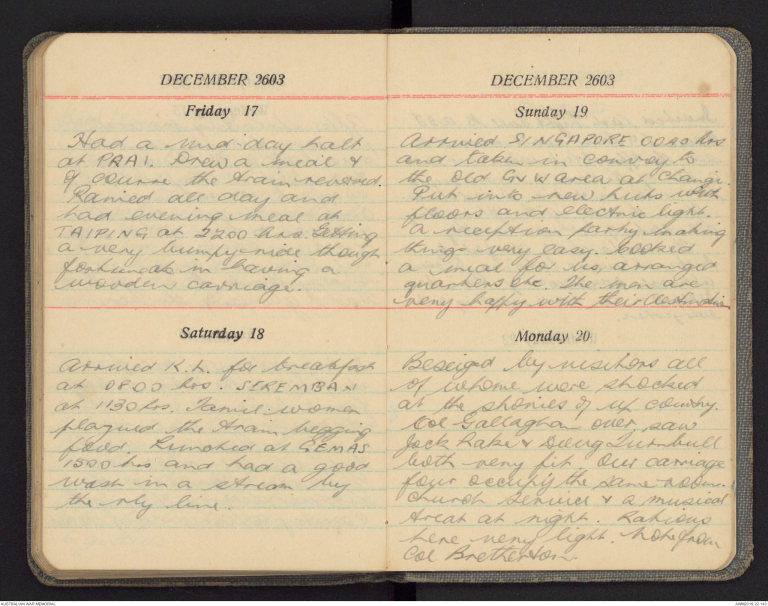 DECEMBER 2603
Friday 17
Had a mid-day halt
at PRAI. Drew a meal &
of course the train reversed.
Rained all day and
had evening meal at
TAIPING at 2200 hrs. Getting
a very bumpy ride though
fortunate in having a
wooden carriage.
Saturday 18
Arrived K.L. for breakfast
at 0800 hrs. SEREMBAN
at 1130 hrs. Tamil women
plagued the train begging
food. Lunched at GEMAS
1500 hrs and had a good
wash in a stream by
the rly line.
DECEMBER 2603
Sunday 19
Arrived SINGAPORE 0040 hrs
and taken in convoy to
the old area at Changi.
Put into new huts with
floors and electric light.
A reception party making
things very easy. Cooked
a meal for us, arranged
quarters etc. The men are
very happy with their
Monday 20
Beseiged by visitors all
of whome were shocked
at the stories of up country.
Col Gallaghan over, saw
Jack Rake & Doug Turnbull
both very fit. Our carriage
four occupy the same room.
Church Service & a musical
treat at night. Rations
here very light. Note from
Col Bretherton.
AUSTRALIAN WAR MEMORIAL